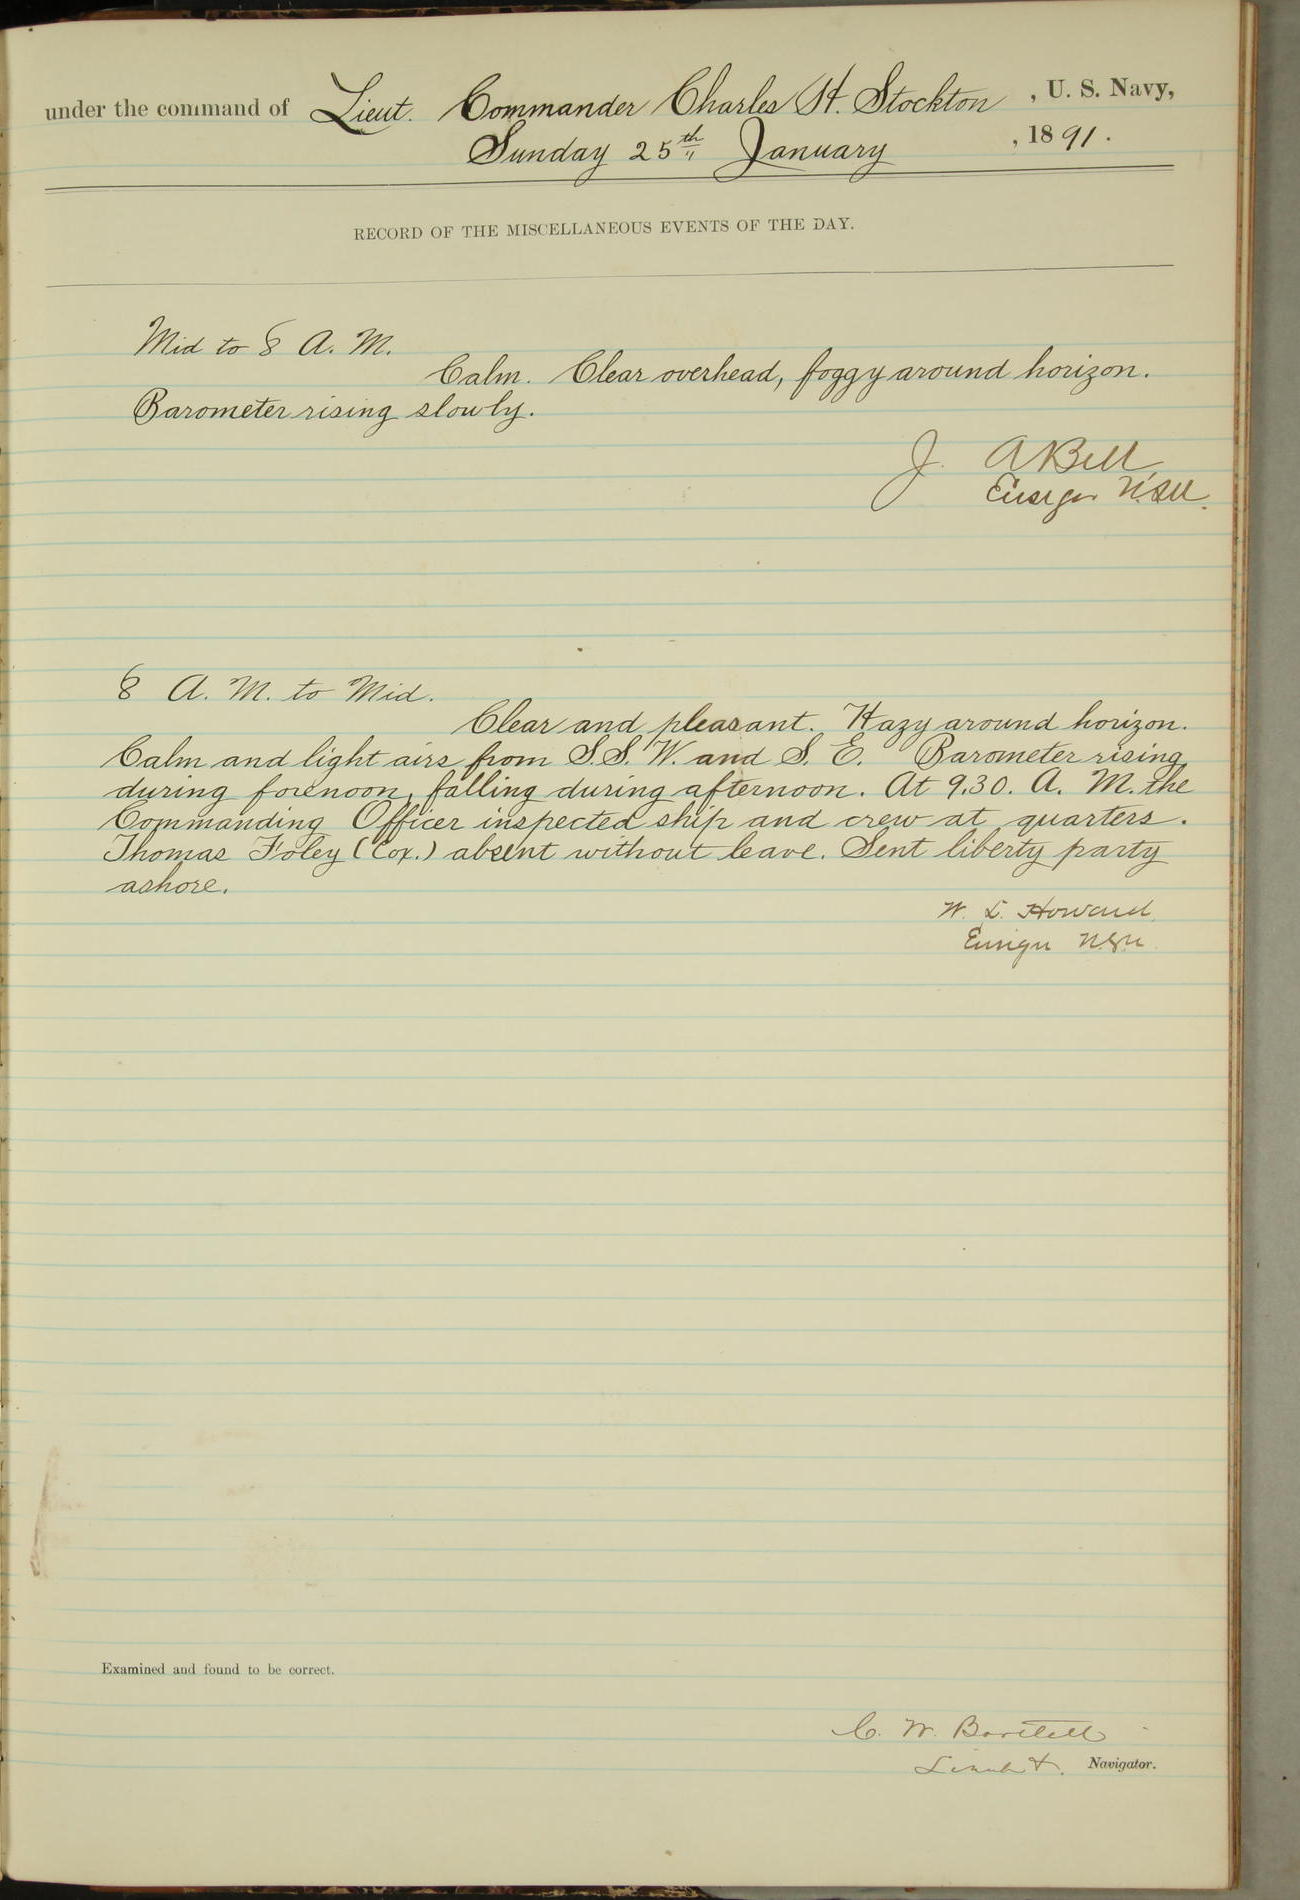 under the command of Lieut. Commander Charles H. Stockton , U. S. Navy,
Sunday 25th January , 1891.
RECORD OF THE MISCELLANEOUS EVENTS OF THE DAY.
Mid to 8 A. M.
Calm. Clear overhead, foggy around horizon.
Barometer rising slowly.
J. A Bell
Ensign U.S.N.
8 A. M. to Mid.
Clear and pleasant. Hazy around horizon.
Calm and light airs from S.S.W. and S. E. Barometer rising
during forenoon, falling during afternoon. At 9.30. A. M. the
Commanding Officer inspected ship and crew at quarters.
Thomas Foley (Cox.) absent without leave. Sent liberty party
ashore.
W. L. Howard
Ensign U.S.N.
Examined and found to be correct.
C. W. Bartlett
Lieut. Navigator.